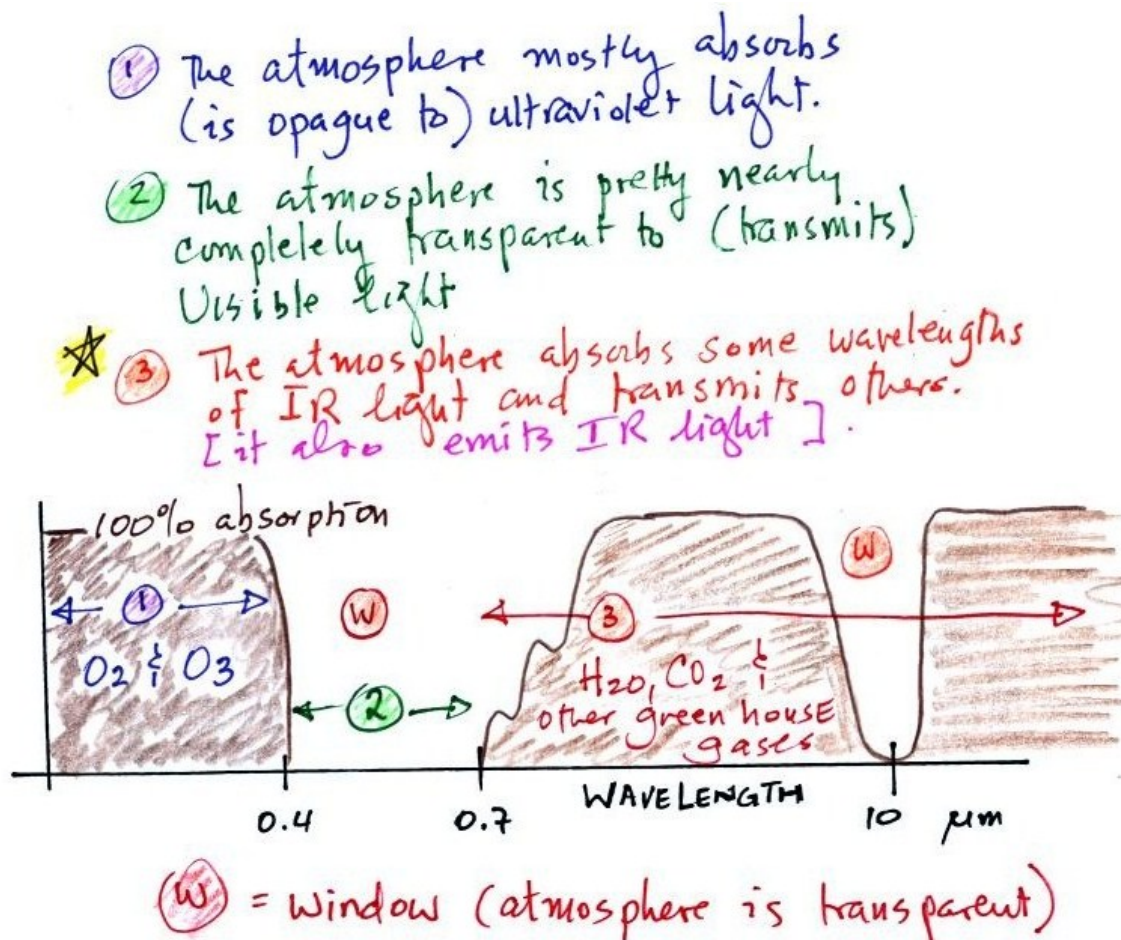 ① The atmosphere mostly absorbs
(is opaque to) ultraviolet light.
② The atmosphere is pretty nearly
completely transparent to (transmits)
Visible light
☆ ③ The atmosphere absorbs some wavelengths
of IR light and transmits others.
[it also emits IR light].
100% absorption
① W 3 W
O2 & O3
2
H2O, CO2 &
other green house
gases
0.4 0.7 WAVELENGTH 10 μm
W = window (atmosphere is transparent)